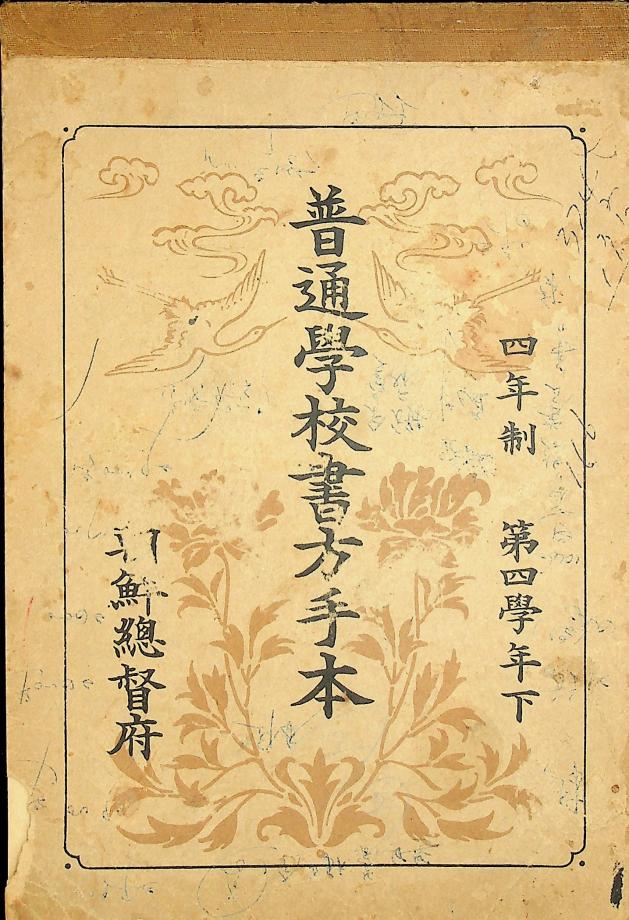 四年制 第四學年下
普通學校書方手本
朝鮮總督府